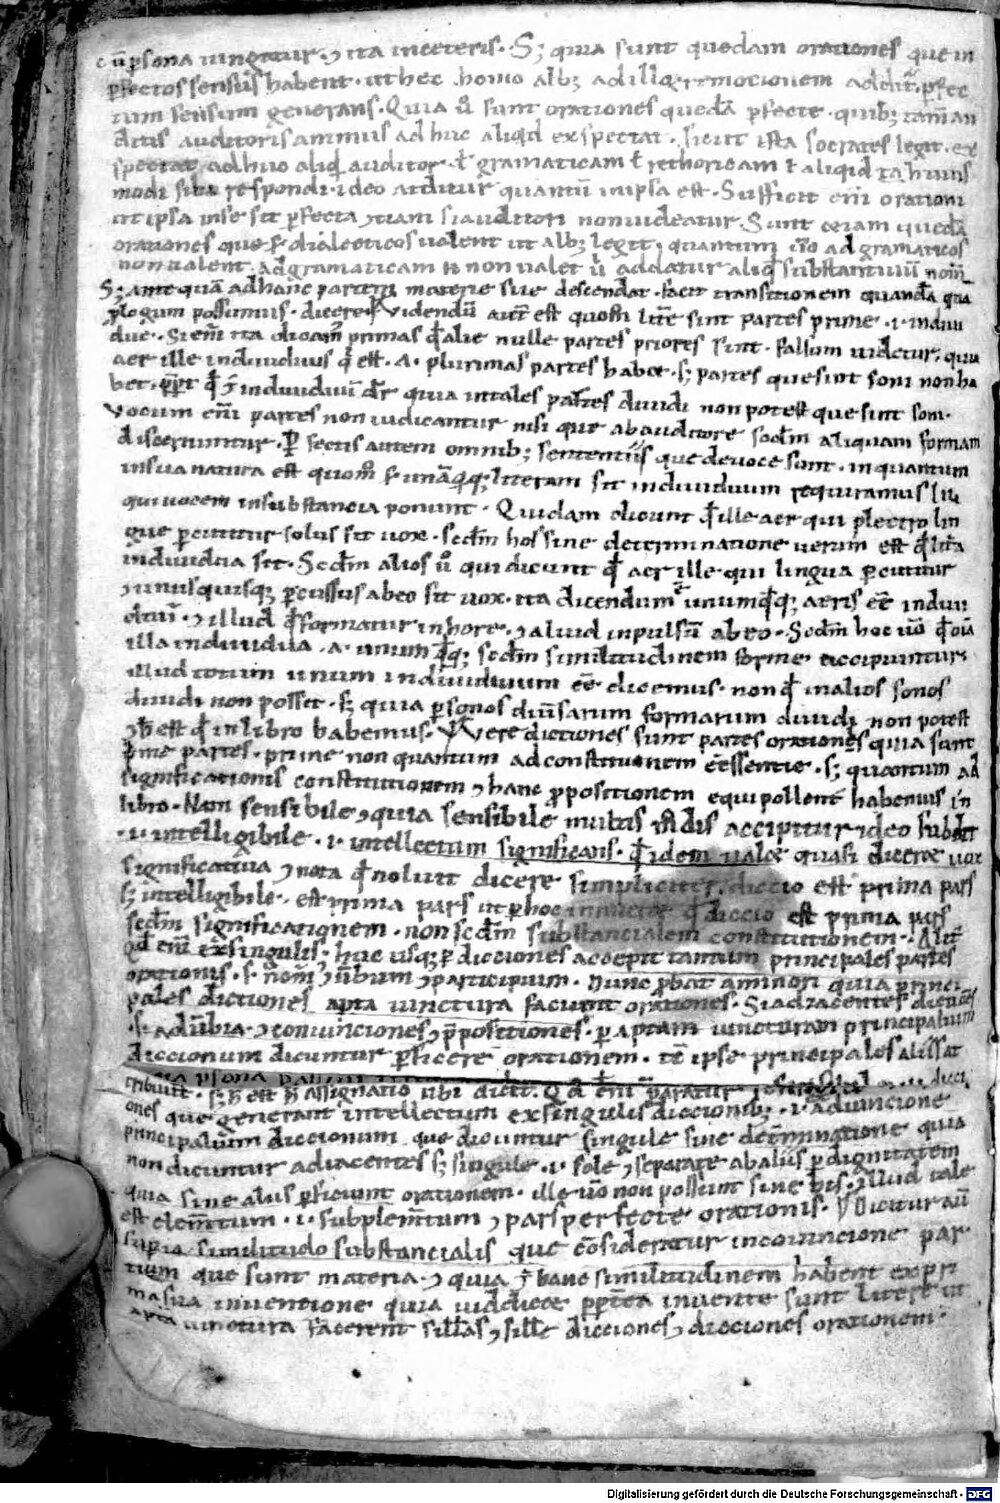 cū psona iungatur. ⁊ ita inceteris. S; quia sunt quedam orationes que in
pfectos sensus habent. ut hec homo alb; ad illā remocionem addit.
tum sensum generans. Quia ů sunt orationes quedā pfecte. quib; tam̄ an
ditis auditoris animus ad huc aliqd exspectat. sicut ista socrates legit. ex
spectat adhuc aliqd auditor. ł gramaticam ł rethoricam ł aliqid
modi sibi respondi. ideo quantū inipsa est. Sufficit eni orationi
ut ipsa inse sit pfecta si auditori nonuideatur. Sunt etiam quedā
orationes que dialecticos ualent ut alb; legit, quantum ad gramaticos
non ualent. ad gramaticam non ualet addatur aliqd substantiuū
S; ante quā ad hanc partem materie sue descendat. facit transitionem quandā quā
plogum possumus dicere. Videndū aut est quom̄ litre sint partes prime. i. indiui
due. Si em̄ ita dicam̄ primas qd alie nulle partes priores sint. falsum uidetur. quia
aer ille indiuiduus qd est. A. plurimas partes habet. s; partes que sint soni non ha
bet. ppt qd indiuiduū dr quia intales partes diuidi non potest que sint soni.
Vocum eni partes non iudicantur nisi que ab auditore scdm aliquam formam
discernuntur. P fectis autem omnib; sententiis que de uoce sunt. in quantum
insua natura est quom̄ literam sit indiuiduum requiramus
qui uocem insubstancia ponunt. Quidam dicunt qd ille aer qui plectro lin
gue pcutitur solus sit uox. scdm hos sine determinatione uerum est qd litra
indiuidua sit. Scdm alios ů qui dicunt qd aer ille qui lingua pcutitur
⁊ unusquisq; pcussus ab eo sit uox. ita dicendum unumqdq; aeris eē indiui
duū. ⁊ illud qd formatur in hore. ⁊ aliud inpulsū ab eo. Scdm hoc ůo qd oīa
illa indiuidua. A. unum qdq; scdm similitudinem forme accipiuntur
illud totum unum indiuiduum eē dicemus. non qd inalios sonos
diuidi non posset. s; quia p sonos diůsarum formarum diuidi non potest
⁊ h est qd in libro habemus. Vere dictiones sunt partes orationes quia sunt
pme partes. prime non quantum ad constitutionem eēssentie. s; quantum ad
significationis constitutionem ⁊ hanc ppositionem equipollent habemus in
libro. Non sensibile, quia sensibile multis modis accipitur ideo subdit
. i. intelligibile. i. intellectum significans. qd idem ualet quasi diceret uox
significatiua ⁊ nota qd noluit dicere simpliciter. diccio est prima pars
s; intelligibile. est prima pars ut p hoc innueret qd diccio est prima pars
scdm significationem. non scdm substancialem constitutionem.
Qd eni exsingulis; huc usq; p dicciones accepit tantum principales partes
orationis. s. nom̄ ⁊ ůbum ⁊ participium. Nunc pbat a minori quia princi
pales dictiones apta iunctura faciunt orationes. Si adiacentes
. s. adubia. ⁊ coniunciones ⁊ ppositiones. p aptam iuncturam principalium
diccionum dicuntur pficere orationem. ipse principales
tribuit. s; assignatio ubi dicit. Qd eni
ones que generant intellectum exsingulis diccionib;. i. adiuncione
principalium diccionum que dicuntur singule sine determinatione quia
non dicuntur adiacentes s; singule. i. sole ⁊ separate ab aliis p dignitatem
quia sine aliis pficiunt orationem. ille ůo non possunt sine his. illud tale
est elemtum. i. supplemtum ⁊ pars perfecte orationis. Dicitur aū
supra similitudo substancialis que consideratur inconiuncione par
tium que sunt materia. ⁊ quia hanc similitudinem habent expri
ma sua inuentione quia uidelicet pptea inuente sunt litere ut
apta iunctura facerent sillas, ⁊ sille dicciones ⁊ dicciones orationem.
Digitalisierung gefördert durch die Deutsche Forschungsgemeinschaft - DFG